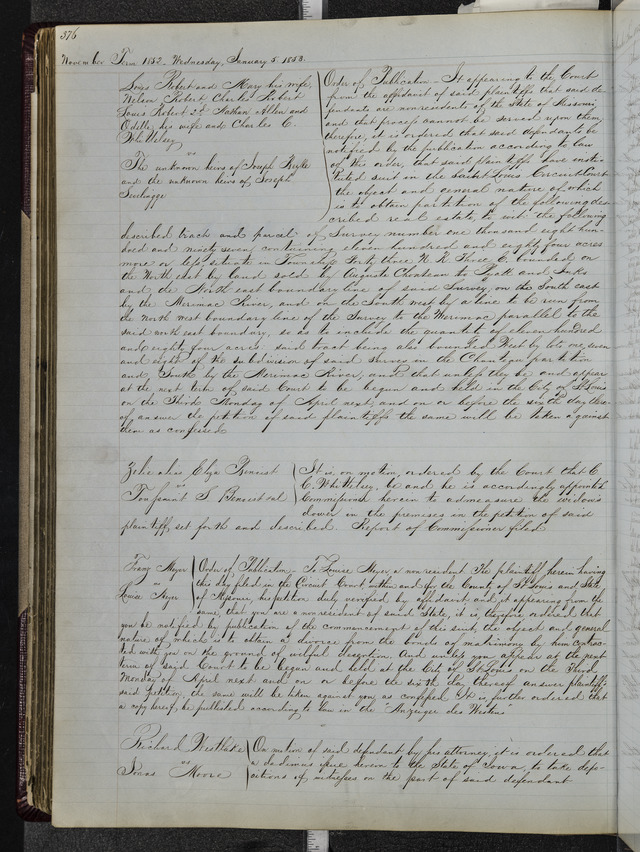 376
November Term 1852 - Wednesday, January 5, 1853.
Louis Robert and Mary his wife,
Nelson Robert Charles Robert
Louis Robert 2d Nathan Allen and
Odelle, his wife and Charles C.
Whittlesey
vs
The unknown heirs of Joseph
and the unknown heirs of Joseph
Order of Publication - It appearing to the Court
from the affidavit of said plaintiffs that said de-
fendants are non residents of the State of Missouri
and that process cannot be served upon them,
therefore, it is ordered that said defendants be
notified by the publication according to law
of this order, that said plaintiffs have insti-
tuted suit in the Saint Louis Circuit Court
the object and general nature of which
is to obtain partition of the following des-
cribed real estate, to wit the following
described tract and parcel of Survey number one thousand eight hun-
dred and ninety seven containing eleven hundred and eighty four acres
more or less situate in Township Forty three N. R. Three E. bounded on
the North east by land sold by Auguste Chouteau to and
and the North east boundary line of said Survey, on the South east
by the Merimac River, and on the South west by a line to be run from
the North west boundary line of the Survey to the Merimac parallel to the
said north east boundary, so as to include the quantity of eleven hundred
and eighty four acres, said tract being also bounded West by lots one, seven
and eight of the subdivision of said survey in the Chouteau partition
and South by the Merimac River, and that unless they be and appear
at the next term of said Court to be begun and held in the City of St Louis
on the Third Monday of April next, and on or before the sixth day there-
of answer the petition of said plaintiffs the same will be taken against
them as confessed
alias Eliza Benoist
vs
Toussaint S Benoist et al
It is on motion, ordered by the Court that C
C. Whittlesey be and he is accordingly appointed
Commissioner herein to admeasure the widow's
dower in the premises in the petition of said
plaintiff, set forth and described. Report of Commissioner filed
Franz Meyer
vs
Louise Meyer
Order of Publication - To Louise Meyer a non resident The plaintiff herein having
this day filed in the Circuit Court, within and for the County of St Louis and State
of Missouri, his petition duly verified by affidavit and it appearing from the
same, that you are a non resident of said State, it is therefore ordered that
you be notified by publication of the commencement of this suit, the object and general
nature of which is to obtain a divorce from the bonds of matrimony by him contrac-
ted with you on the ground of willful desertion. And unless you appear at the next
term of said Court to be begun and held at the City of St Louis on the Third
Monday of April next and on or before the sixth day thereof answer plaintiffs
said petition, the same will be taken against you as confessed It is further ordered that
a copy hereof be published according to law in the "Anzeiger des Westens"
Richard Westlake
vs
Jonas Moore
On motion of said defendant by his attorney, it is ordered that
a dedimus issue herein to the State of Iowa, to take dep-
ositions of witnesses on the part of said defendant